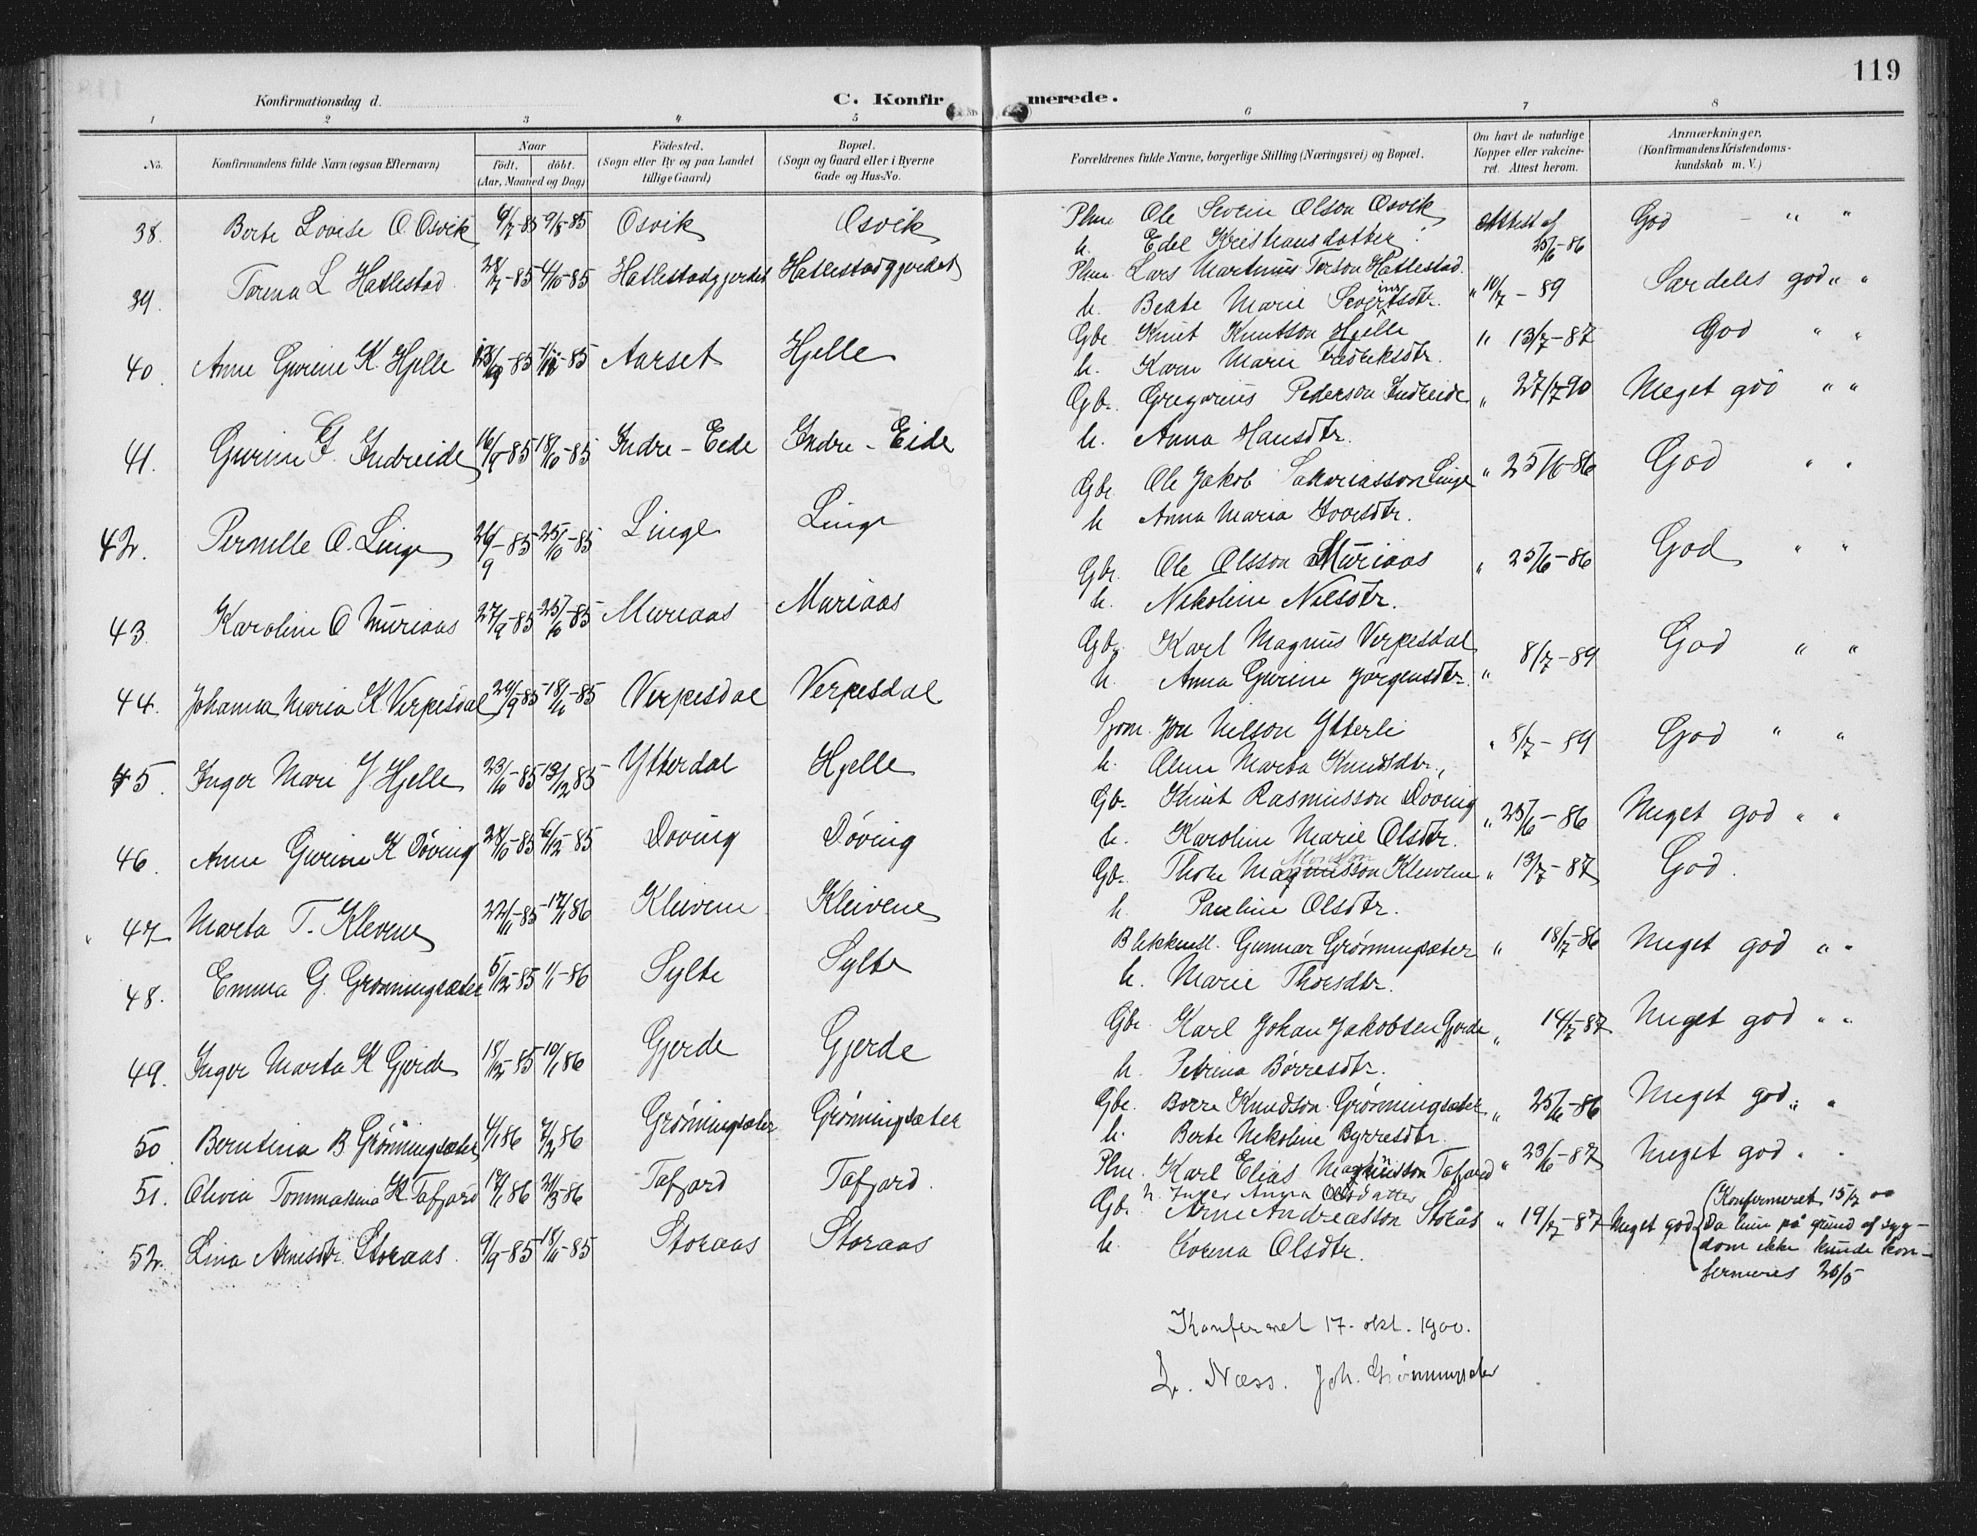 119
Konfirmationsdag d.
C. Konfirmerede.
1 2 3 4 5 6 7 8
No. Konfirmandens fulde Navn (ogsaa Efternavn) Naar født, døbt. (Aar, Maaned og Dag) Fødested. (Sogn eller By og paa Landet tillige Gaard) Bopæl. (Sogn og Gaard eller i Byerne Gade og Hus-No. Forældrenes fulde Navne, borgerlige Stilling (Næringsvei) og Bopæl. Om havt de naturlige Kopper eller vakcineret. Attest herom. Anmærkninger. (Konfirmandens Kristendomskundskab m. V.)
38. Berte Lovise O. Osvik 6/7-85 9/8-85 Osvik Osvik Plm. Ole Severin Olson Osvik Attest af 25/6-86 God - " "
h. Edel Kristiansdatter
39. Torena L Hatlestad 28/7-85 4/10-85 Hatlestadgjerdet Hatlestadgjerdet Plm. Lars Martinus Torson Hatlestad. " 10/7-89 Særdeles god " "
h. Beate Marie Severinsdtr.
40. Anne Gurine K. Hjelle 85 85 Aarset Hjelle Gbr. Knut Knutson Hjelle " 13/7-87 God " "
h. Karn Marie Fredriksdtr.
41. Gurine G. Indreide 16/9-85 18/10-85 Indre-Eide Indre-Eide Gbr. Gregorius Pederson Indreide " 27/7 90 Meget god " "
h. Anna Hansdtr.
42. Pernille O. Linge 26/9-85 25/10-85 Linge Linge Gbr. Ole Jakob Sakariasson Linge " 25/6-86 God " "
h. Anna Maria Iversdtr.
43. Karoline O Muriaas 27/9-85 25/10-85 Muriaas Muriaas Gbr. Ole Olsson Muriaas " 25/6-86 God " "
h. Nikoline Nilsdtr.
44. Johanna Maria K Verpesdal 29/9-85 18/10-85 Verpesdal Verpesdal Gbr. Karl Magnus Verpesdal " 8/7-89 God " "
h. Anna Gurine Jørgensdtr.
45. Inger Mari J. Hjelle 23/10-85 13/12 85 Ytterdal Hjelle Jon Nilson Ytterli " 8/7-89 God " "
h. Marta Knudsdtr.
46. Anne Gurine K Døving 28/10-85 6/12-85 Doving Døving Gbr. Knut Rasmusson Doving " 25/6-86 Meget god " "
h. Karoline Marie Olsdtr.
47 Marta T. Klevene 22/11-85 17/1 86 Kleivene Kleivene Gbr. Monsson Kleivene " 13/7-87 God.
h. Pauline Olsdtr.
48. Emma G. Grønningsæter 5/12-85 1/1-86 Sylte Sylte Gunnar Grønningsæter " 18/7-86 Meget god " "
h. Marie Thoresdtr.
49. Inger Marta K Gjerde 18/12-85 10/1 86 Gjerde Gjerde Gbr. Karl Johan Jakobsen Gjerde " 14/7-87 Meget god " "
h. Petrina Børresdtr.
50 Berntina B Grønningsæter 4/1 86 7/2 86 Grønningsæter Grønningsæter Gbr. Børre Knudson Grønningsæter " 25/6-86 Meget god " "
h. Berte Nikoline Byrresdtr.
51. Olivia Tommassina K Tafjord 17/1 86 21/3-86 Tafjord Tafjord. Plm. Karl Elias Magnusson Tafjord " 23/6-87 Meget god " "
h. Inger Anna Olsdatter
52. Lina Arnesdtr. Storaas 9/9-85 18/10-85 Storaas Storaas Gbr. Arne Andreasson Storås " 19/7-87 Meget god (Konfirmeret 15/7 00
h. Korena Olsdtr. Da hun på grund af syg-
dom ikke kunde kon-
fermeres 20/5
Konfermet 17. okt. 1900.
L. Næss. Joh. Grønningsæter